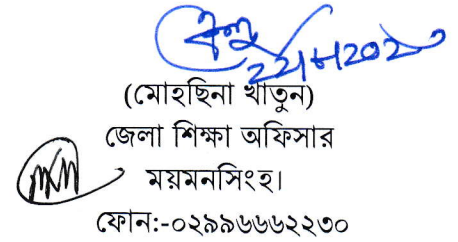 (মোহছিনা খাতুন)
জেলা শিক্ষা অফিসার
ময়মনসিংহ।
ফোন:-০২৯৯৬৬৬২২৩০